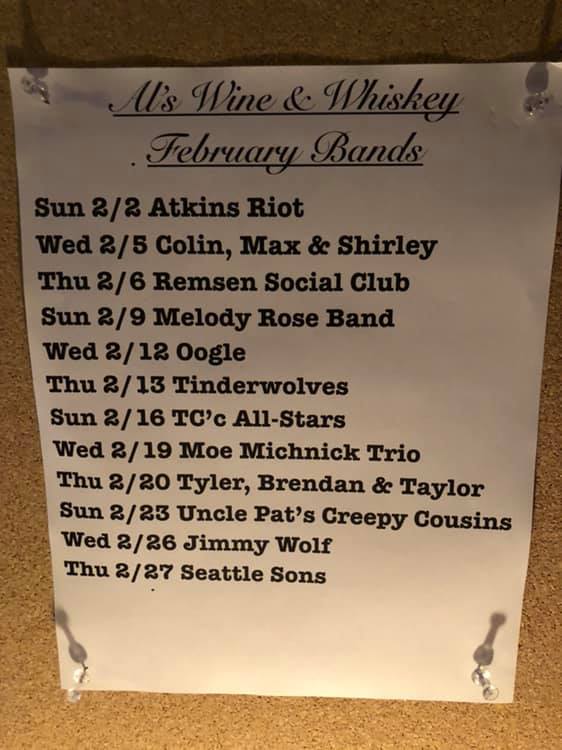 Al's Wine & Whiskey
February Bands
Sun 2/2 Atkins Riot
Wed 2/5 Colin, Max & Shirley
Thu 2/6 Remsen Social Club
Sun 2/9 Melody Rose Band
Wed 2/12 Oogle
Thu 2/13 Tinderwolves
Sun 2/16 TC'c All-Stars
Wed 2/19 Moe Michnick Trio
Thu 2/20 Tyler, Brendan & Taylor
Sun 2/23 Uncle Pat's Creepy Cousins
Wed 2/26 Jimmy Wolf
Thu 2/27 Seattle Sons